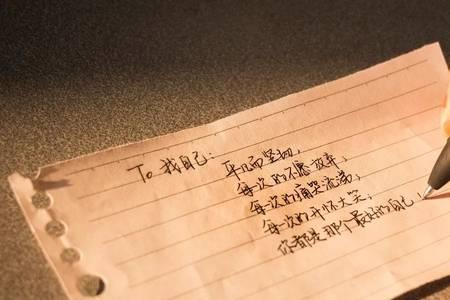 To 我自己：
平凡而坚韧，
每次的不愿放弃，
每次的痛哭流涕，
每次的开怀大笑，
你都是那个最好的自己，